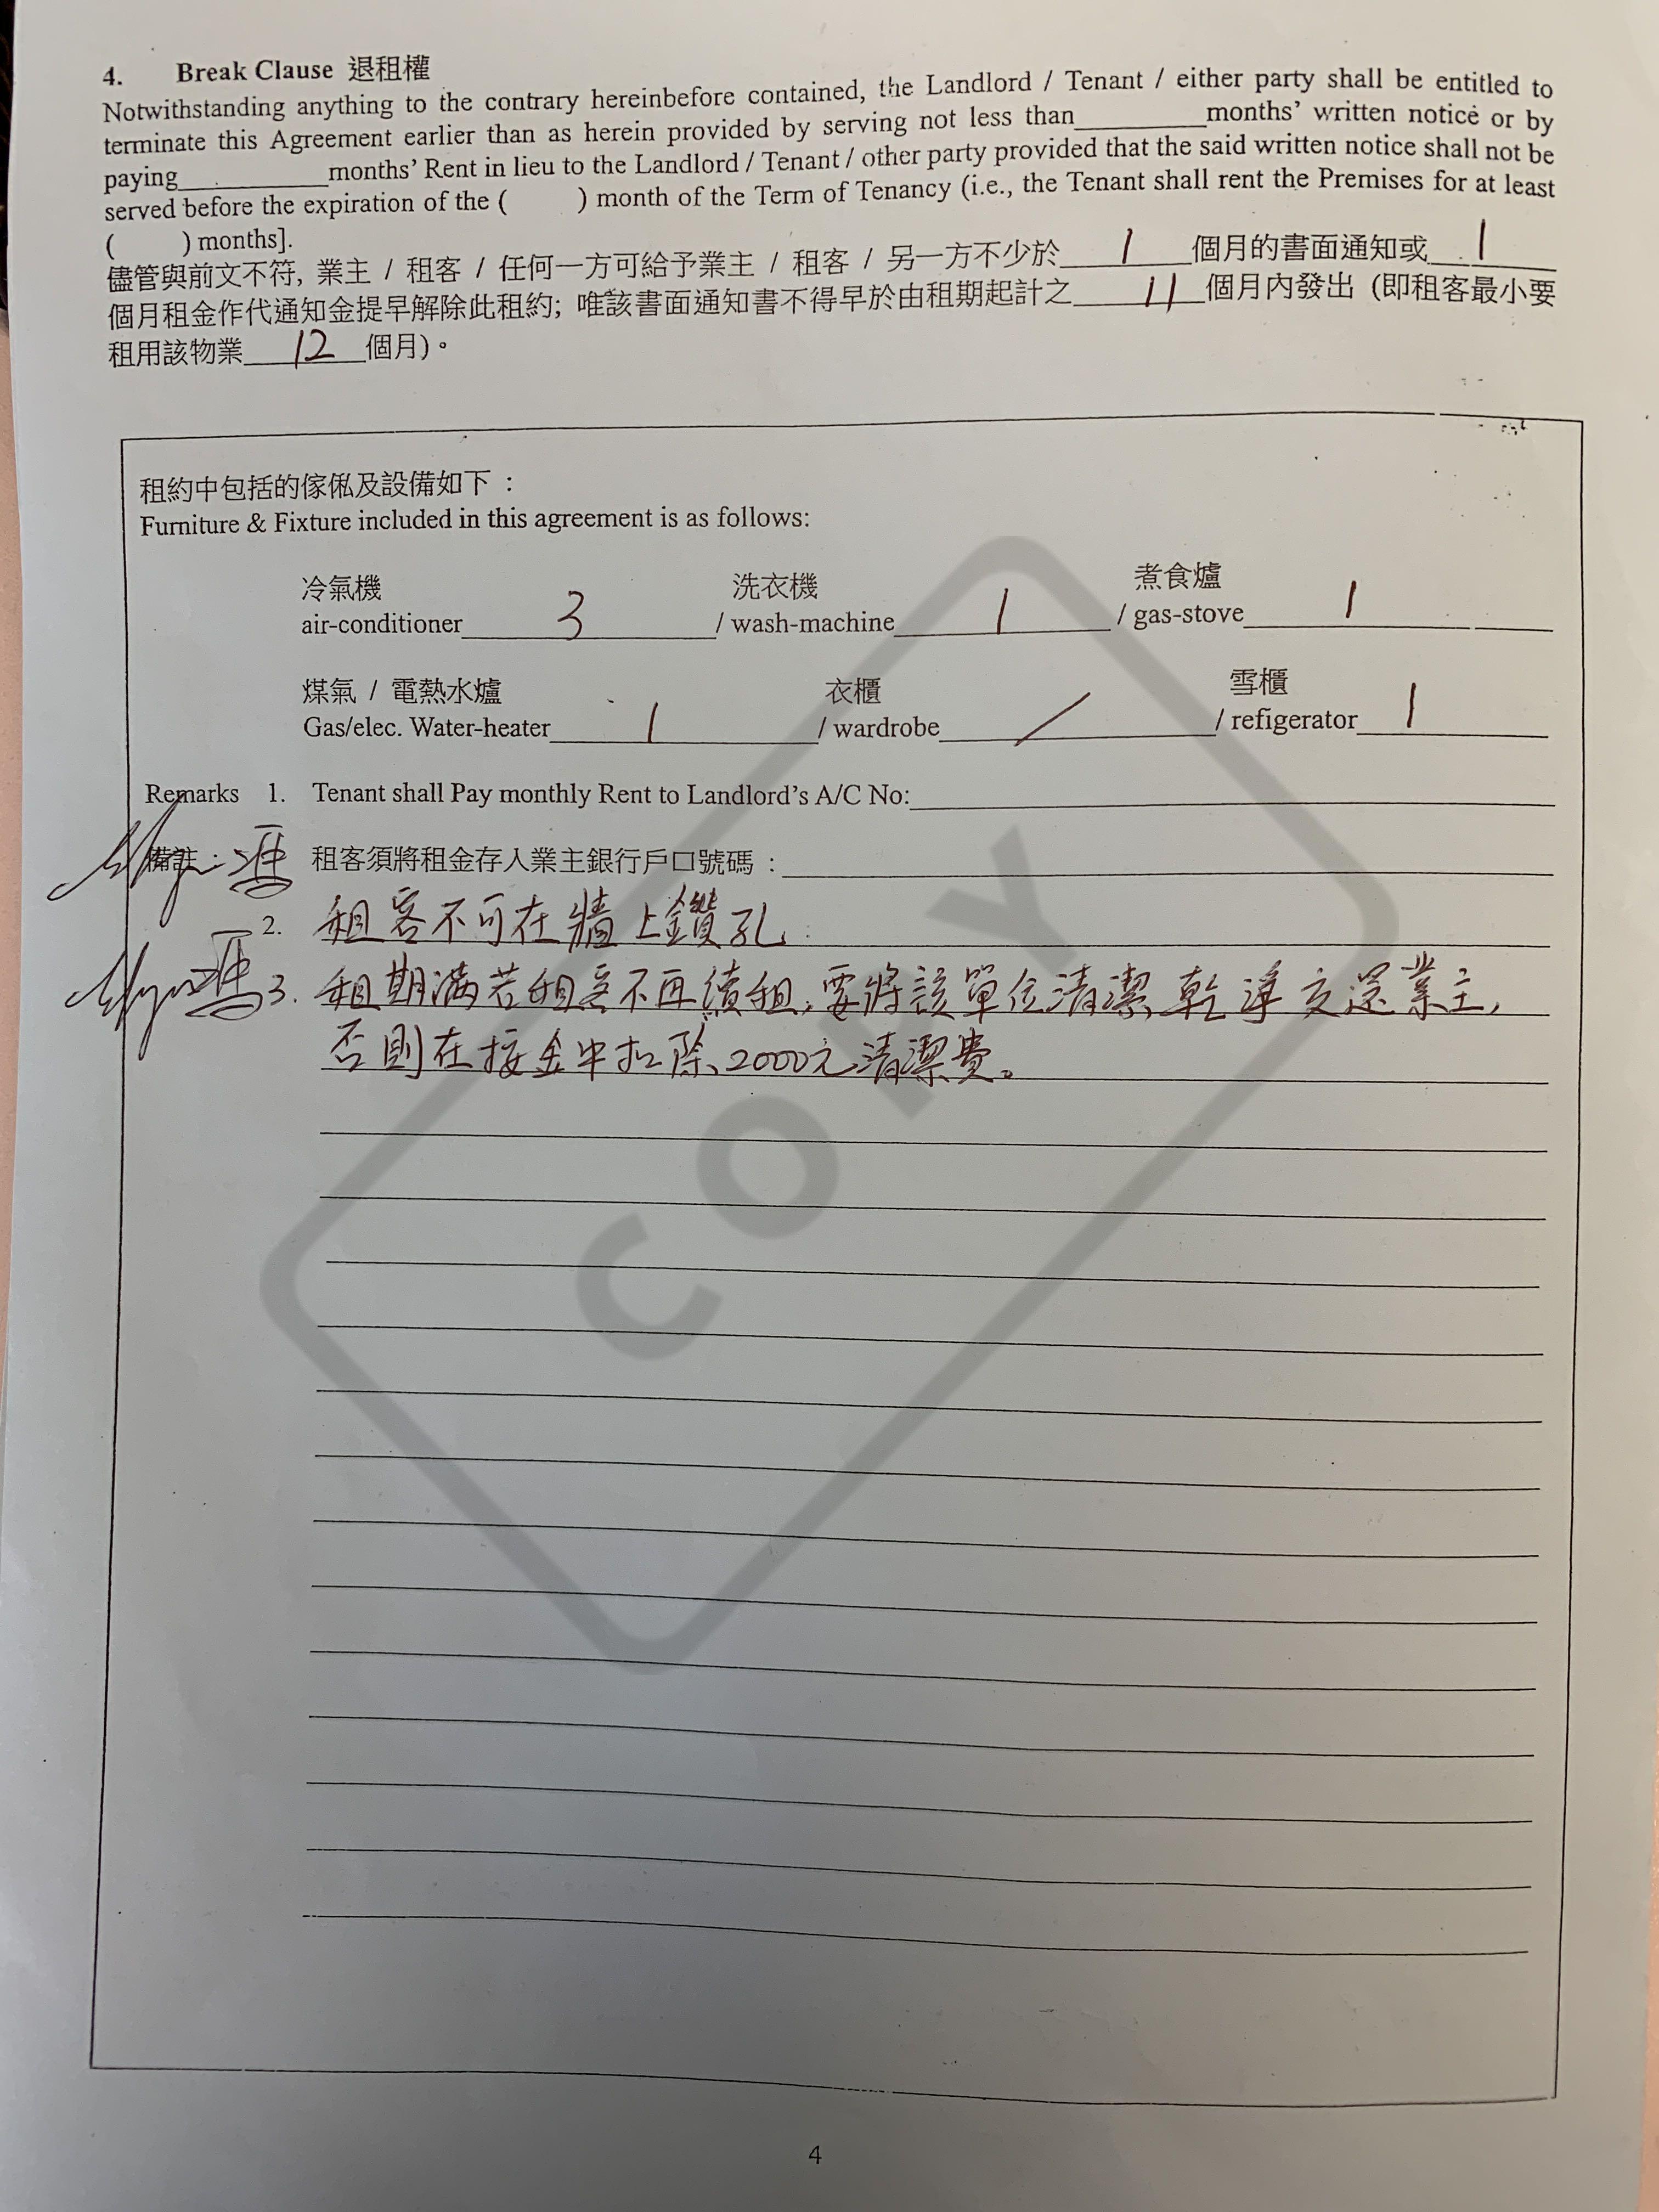 4. Break Clause 退租權
Notwithstanding anything to the contrary hereinbefore contained, the Landlord / Tenant / either party shall be entitled to
terminate this Agreement earlier than as herein provided by serving not less than________months' written notice or by
paying_________months' Rent in lieu to the Landlord / Tenant / other party provided that the said written notice shall not be
served before the expiration of the ( ) month of the Term of Tenancy (i.e., the Tenant shall rent the Premises for at least
( ) months].
儘管與前文不符, 業主 / 租客 / 任何一方可給予業主 / 租客 / 另一方不少於 1 個月的書面通知或 1
個月租金作代通知金提早解除此租約; 唯該書面通知書不得早於由租期起計之 11 個月內發出 (即租客最小要
租用該物業 12 個月)。
租約中包括的傢俬及設備如下 :
Furniture & Fixture included in this agreement is as follows:
冷氣機 洗衣機 煮食爐
air-conditioner 3 / wash-machine 1 / gas-stove 1
煤氣 / 電熱水爐 衣櫃 雪櫃
Gas/elec. Water-heater 1 / wardrobe / / refigerator 1
Remarks 1. Tenant shall Pay monthly Rent to Landlord's A/C No:
備註 : 租客須將租金存入業主銀行戶口號碼 :
2. 租客不可在牆上鑽孔
3. 租期滿若租客不再續租,要將該單位清潔乾淨交還業主,
否則在按金中扣除2000元清潔費。
COPY
4